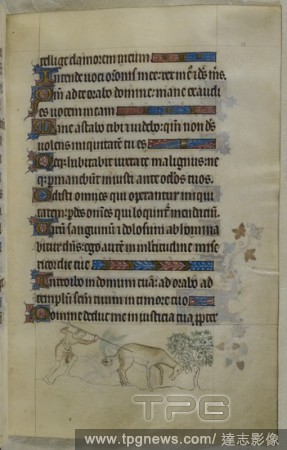 tellige clamorem meum
Intende uoci orationis mee: rex meus
Qm ad te orabo domine: mane exaudi
es uocem meam
Mane astabo tibi & uidebo: qm non ds
uolens iniquitatem tu es
Neqz habitabit iuxta te malignus: ne
qz permanebunt iniusti ante oclos tuos
Odisti omnes qui operantur iniqui
tatem: perdes omnes qui loquuntur mendacium
sanguinum & dolosum abhomina
bitur dns: ego autem in multitudine mise
ricordie tue
Introibo in domum tuam: adorabo ad
templum sanctum tuum in timore tuo
Domine deduc me in iusticia tua propter
TPG
www.tpgnews.com/達志影像